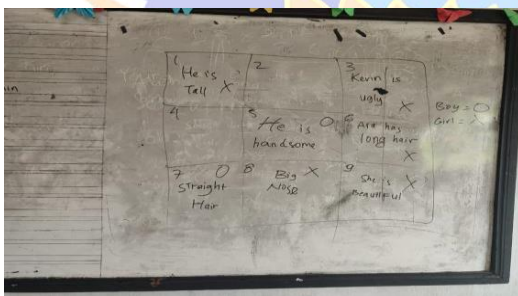 1
He is
Tall X
2
3
Kevin is
ugly X
4
5
He is O
handsome
6
Ara has
long hair
X
7 O
Straight
Hair
8
Big X
Nose
9
She is X
Beautiful
Boy = O
Girl = X